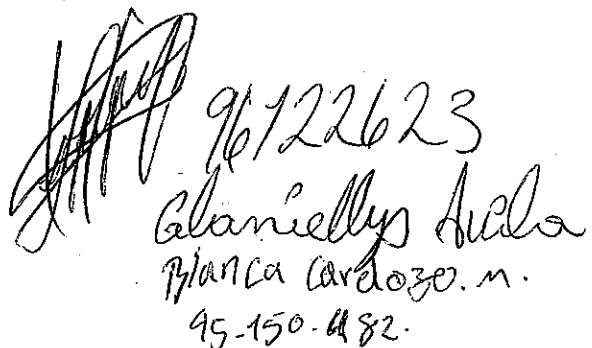 96122623
Glaniellys Avila
Blanca Cardozo. M.
95-150-482.